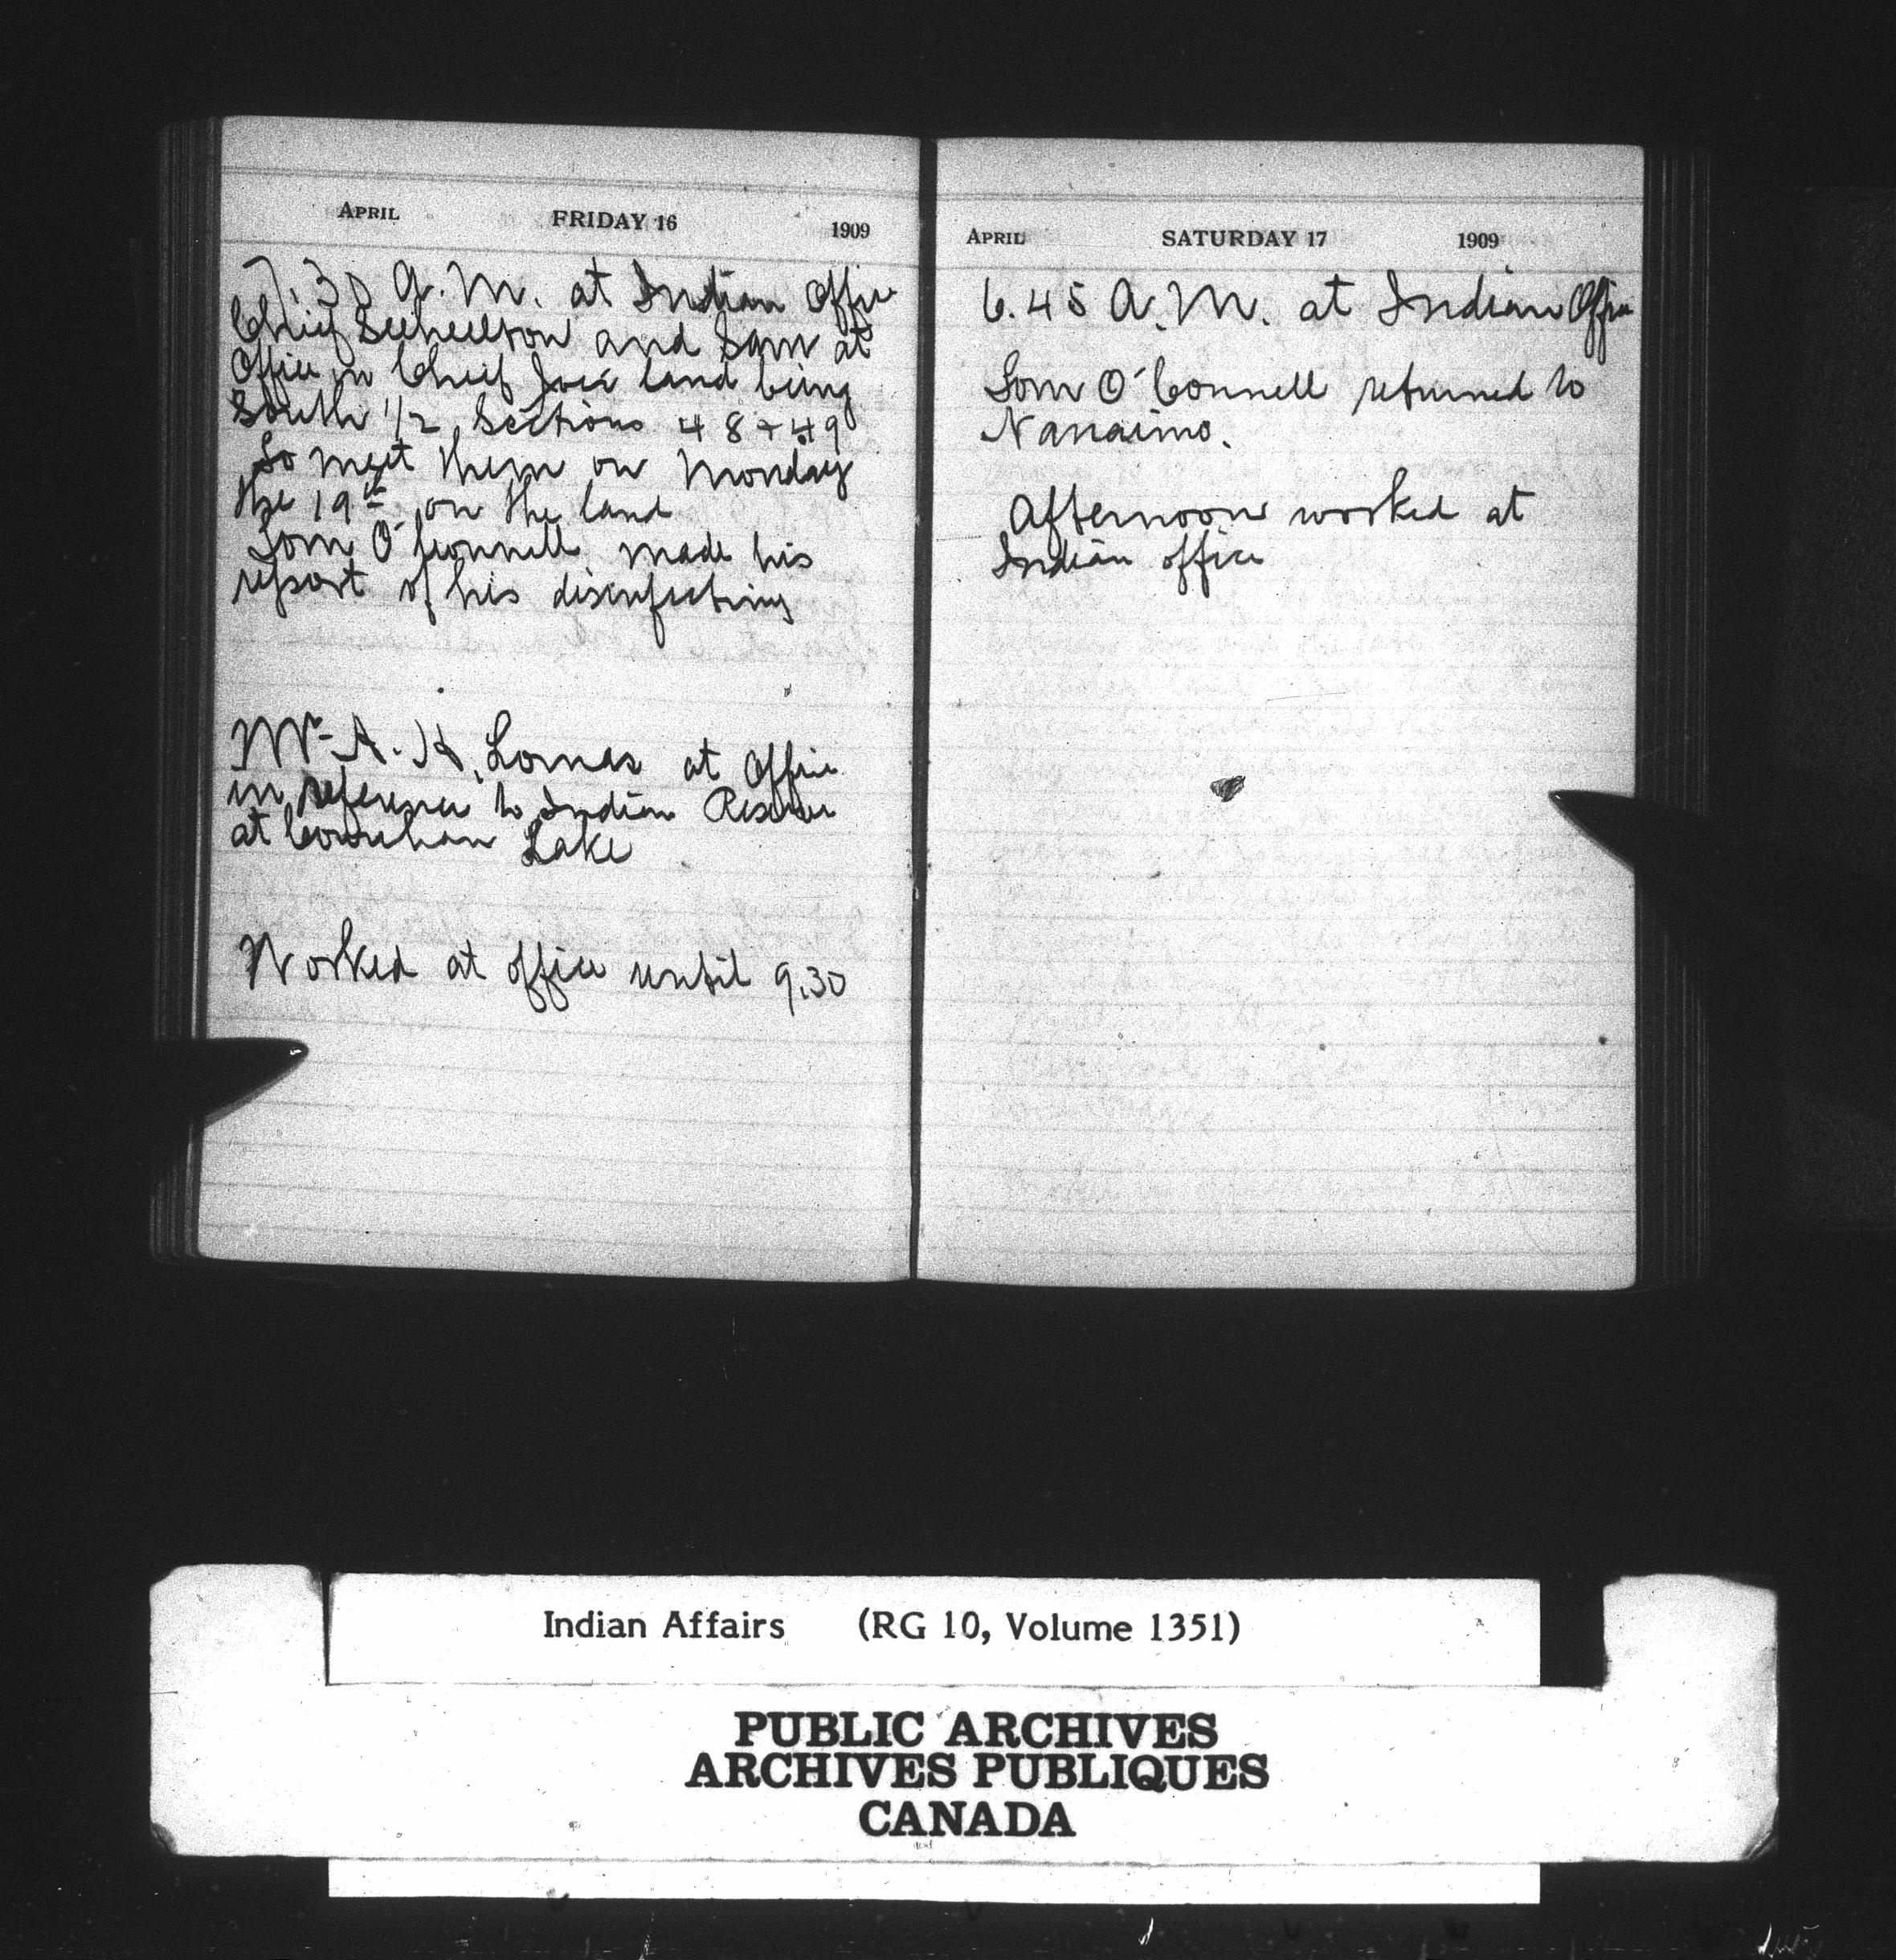 APRIL FRIDAY 16 1909
7.30 A.M. at Indian Office
Chief and Sam at
Office in Chief Joes land being
South 1/2 Sections 48 + 49
To meet them on Monday
the 19th on the land
Tom O'Connell made his
report of his disinfecting
Mr A. H. Lomas at Office
in reference to Indian Reserve
at Cowichan Lake
Worked at office until 9.30
APRIL SATURDAY 17 1909
6.45 A.M. at Indian Office
Tom O'Connell returned to
Nanaimo.
Afternoon worked at
Indian office
Indian Affairs (RG 10, Volume 1351)
PUBLIC ARCHIVES
ARCHIVES PUBLIQUES
CANADA